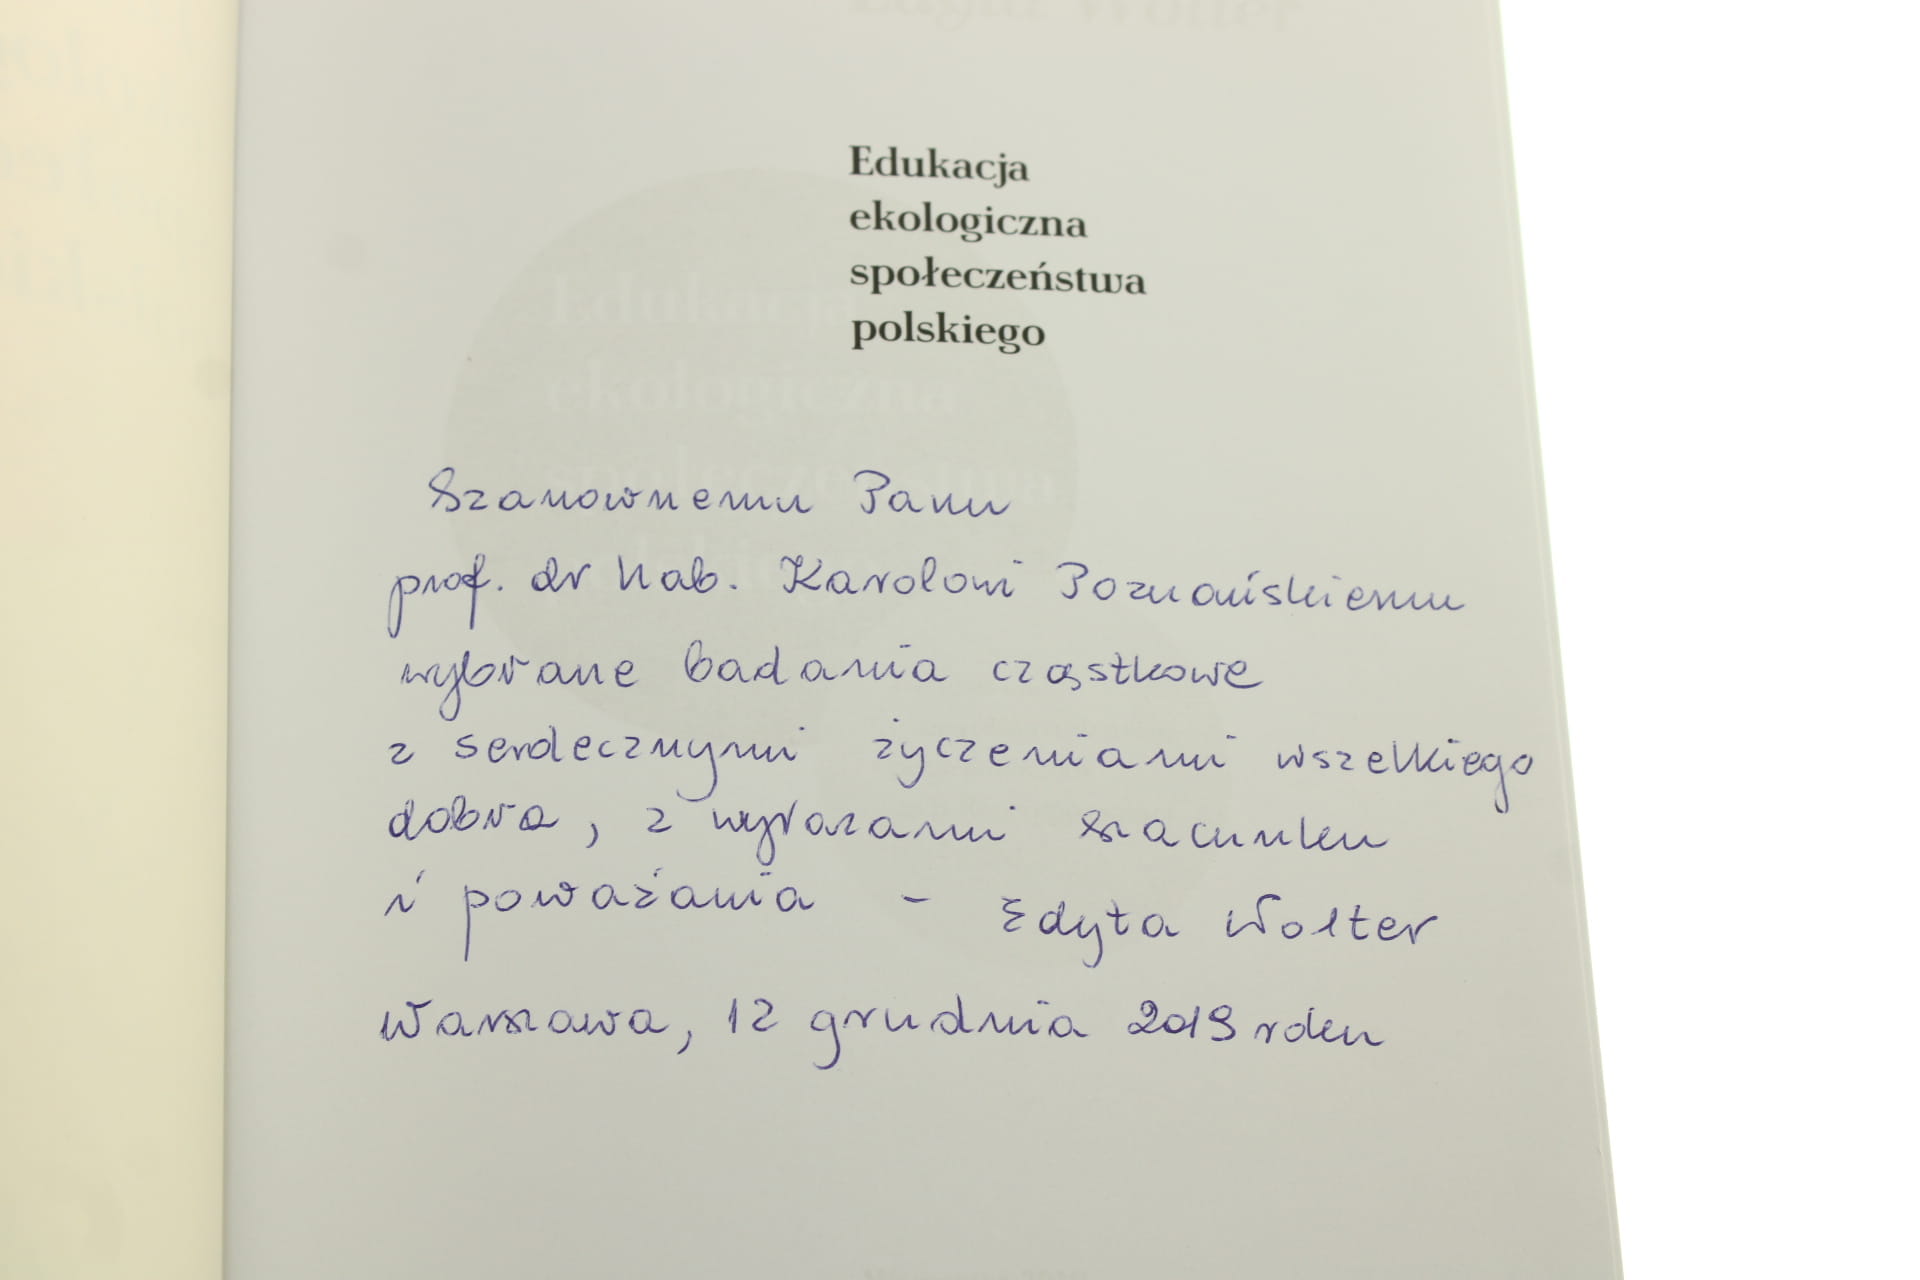 Edukacja
ekologiczna
społeczeństwa
polskiego
Szanownemu Panu
prof. dr hab. Karolowi Poznańskiemu
wybrane badania cząstkowe
z serdecznymi życzeniami wszelkiego
dobra, z wyrazami szacunku
i poważania - Edyta Wolter
Warszawa, 12 grudnia 2019 roku